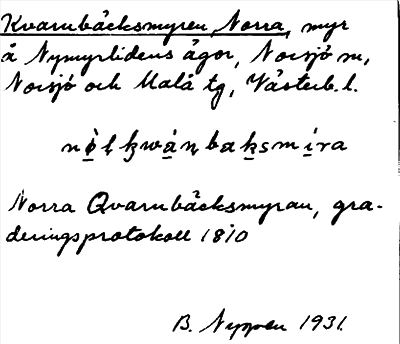 Kvarnbäcksmyren, Norra, myr
å Nymyrlidens ägor, Norsjö sn,
Norsjö och Malå tg, Västerb. l.
Norra Qvarnbäcksmyran, gra-
deringsprotokoll 1810
B. 1931.